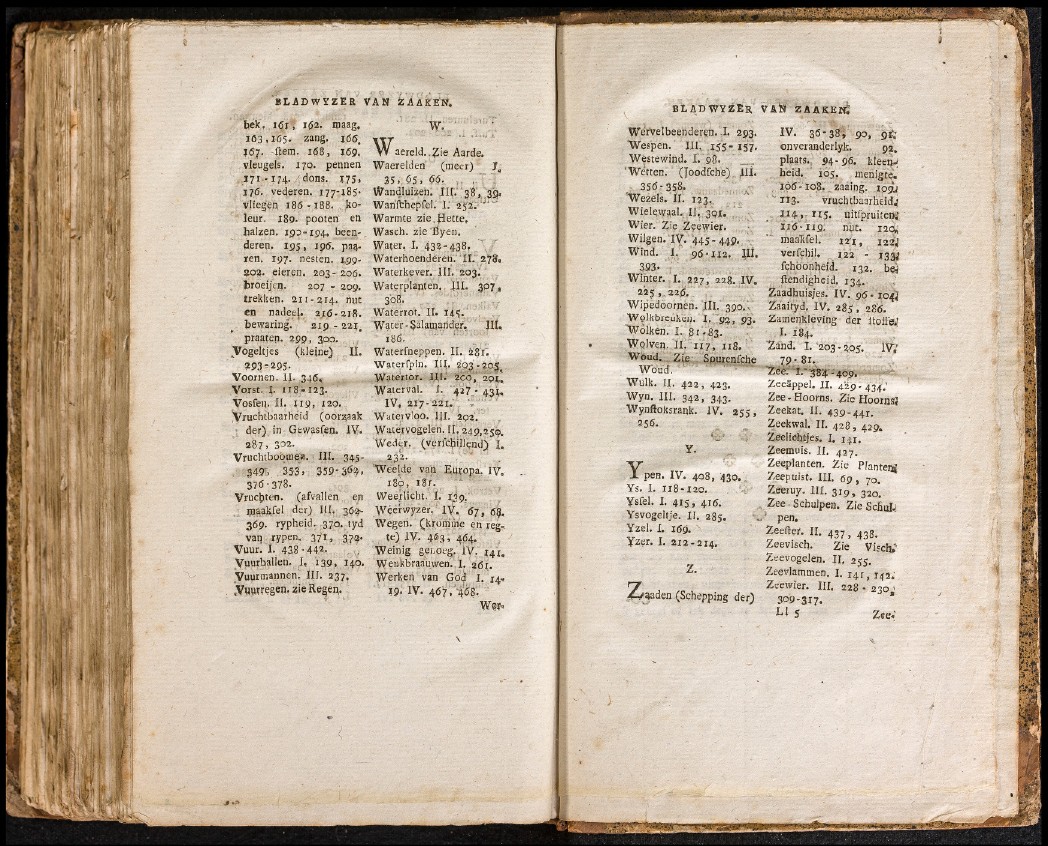 BLADWYZER VAN ZAAKEN.
bek. 161, 162. maag.
163, 165. zang. 166.
167. ſtem. 168, 169.
vleugels. 170. pennen
171-174. dons. 175,
176. vederen. 177-185.
vliegen 186-188. ko-
leur. 189. pooten en
halzen. 190-194. been-
deren. 195, 196. paa-
ren. 197. nesten. 199-
202. eieren. 203-206.
broeijen. 207-209.
trekken. 211-214. nut
en nadeel. 216-218.
bewaring. 219-221.
praaten. 299, 300.
Vogeltjes (kleine) II.
293-295.
Voornen. II. 346.
Vorst. I. 118-123.
Vosſen. II. 119, 120.
Vruchtbaarheid (oorzaak
der) in Gewasſen. IV.
287, 302.
Vruchtboomen. III. 345-
349, 353, 359-362,
376-378.
Vruchten. (afvallen en
maakſel der) III. 362-
369. rypheid. 370. tyd
van rypen. 371, 372.
Vuur. I. 438-442.
Vuurballen. I. 139, 140.
Vuurmannen. III. 237.
Vuurregen. zie Regen.
W.
Waereld. Zie Aarde.
Waerelden (meer) I.
35, 65, 66.
Wandluizen. III. 38, 39.
Wanſchepſel. I. 252.
Warmte zie Hette.
Wasch. zie Byen.
Water. I. 432-438.
Waterhoenderen. II. 278.
Waterkever. III. 203.
Waterplanten. III. 307,
308.
Waterrot. II. 145.
Water-Salamander. III.
186.
Waterſneppen. II. 281.
Waterſpin. III. 203-205.
Watertor. III. 200, 201.
Waterval. I. 427-431.
IV. 217-221.
Watervloo. III. 202.
Watervogelen. II. 249, 250.
Weder. (verſchillend) I.
232.
Weelde van Europa. IV.
180, 181.
Weerlicht. I. 139.
Weerwyzer. IV. 67, 68.
Wegen. (kromme en reg-
te) IV. 463, 464.
Weinig genoeg. IV. 141.
Wenkbraauwen. I. 261.
Werken van God I. 14-
19. IV. 467, 468.
Wer-
BLADWYZER VAN ZAAKEN.
Wervelbeenderen. I. 293.
Wespen. III. 155-157.
Westewind. I. 98.
Wetten. (Joodſche) III.
356-358.
Wezels. II. 123.
Wielewaal. II. 391.
Wier. Zie Zeewier.
Wilgen. IV. 445-449.
Wind. I. 96-112. III.
393.
Winter. I. 227, 228. IV.
225, 226.
Wipedoornen. III. 390.
Wolkbreuken. I. 92, 93.
Wolken. I. 81-83.
Wolven. II. 117, 118.
Woud. Zie Spurenſche
Woud.
Wulk. II. 422, 423.
Wyn. III. 342, 343.
Wynſtoksrank. IV. 255,
256.
Y.
Ypen. IV. 408, 430.
Ys. I. 118-120.
Ysſel. I. 415, 416.
Ysvogeltje. II. 285.
Yzel. I. 169.
Yzer. I. 212-214.
Z.
Zaaden (Schepping der)
IV. 36-38, 90, 91.
onveranderlyk. 92.
plaats. 94-96. kleen-
heid. 105. menigte.
106-108. zaaing. 109,
113. vruchtbaarheid.
114, 115. uitſpruiten.
116-119. nut. 120.
maakſel. 121, 122.
verſchil. 122-133.
ſchoonheid. 132. be-
ſtendigheid. 134.
Zaadhuisjes. IV. 96-104.
Zaaityd. IV. 285, 286.
Zamenkleving der ſtoffe.
I. 184.
Zand. I. 203-205. IV.
79-81.
Zee. I. 384-409.
Zeeäppel. II. 429-434.
Zee-Hoorns. Zie Hoorns.
Zeekat. II. 439-441.
Zeekwal. II. 428, 429.
Zeelichtjes. I. 141.
Zeemuis. II. 427.
Zeeplanten. Zie Planten.
Zeepuist. III. 69, 70.
Zeeruy. III. 319, 320.
Zee-Schulpen. Zie Schul-
pen.
Zeeſter. II. 437, 438.
Zeevisch. Zie Visch.
Zeevogelen. II. 255.
Zeevlammen. I. 141, 142.
Zeewier. III. 228-230,
309-317.
Ll 5 Zee-